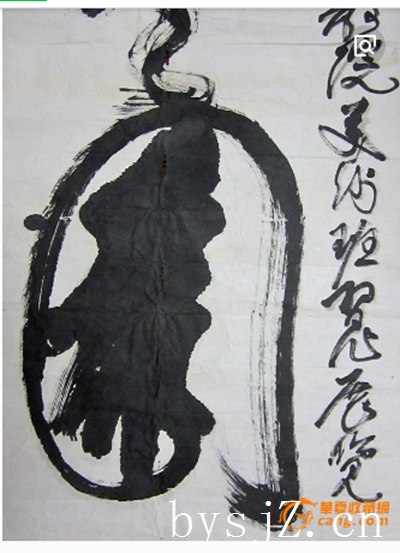 院美術班習作展覽
華夏收藏網
cang.com
bysjZ.cn